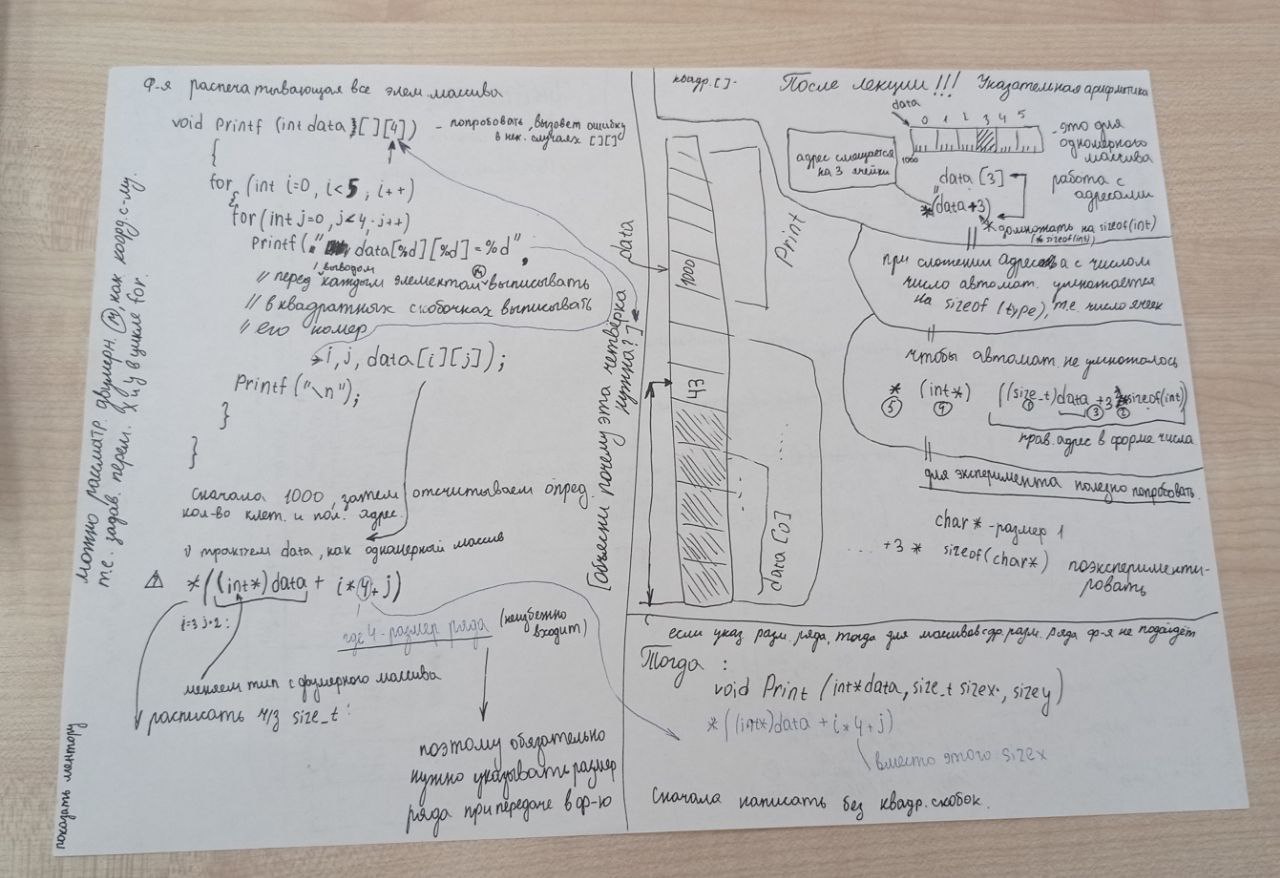 Ф-я распечатывающая все элем. массива
void Printf (int data [ ][4])
- попробовать, вызовет ошибку
в нек. случаях [ ][ ]
{
for (int i=0, i<5; i++)
{
for (int j=0, j<4; j++)
Printf ("data[%d][%d]=%d",
// перед выводом каждым элементом выписывать
// в квадратных скобочках выписывать
// его номер
i, j, data[i][j]);
Printf ("\n");
}
}
сначала 1000, затем отсчитываем опред.
кол-во клет. и пол. адрес.
трактуем data, как одномерный массив
*((int*)data + i*4+j)
i=3 j=2:
где 4 - размер ряда (неизбежно
входит)
меняем тип с двумерного массива
расписать ч/з size_t:
поэтому обязательно
нужно указывать размер
ряда при передаче в ф-ю
можно рассматр. двумерн. М, как коорд. с-му.
т.е. задав. перем. x и y в цикле for.
показать ментору
[Объясни почему эта четвёрка
нужна?]
data
1000
43
Print
data [i0]
квадр. [ ] -
После лекции!!! Указательная арифметика
data
0 1 2 3 4 5
1000
- это для
одномерного
массива
адрес смещается
на 3 ячейки
data [3]
*(data+3)
работа с
адресами
* домножать на sizeof(int)
(* sizeof(int))
при сложении адреса с числом
число автомат. умножается
на sizeof (type), т.е. число ячеек
чтобы автомат. не умножалось
* (int*) ((size_t)data + 3 * sizeof(int))
5 4 1 3 2
прав. адрес в форме числа
для эксперимента полезно попробовать
char* - размер 1
... +3 * sizeof(char*)
поэксперименти-
ровать
если указ. разм. ряда, тогда для массивов с др. разм. ряда ф-я не подойдёт
Тогда :
void Print (int*data, size_t sizex, sizey)
*((int*)data + i*4+j)
вместо этого sizex
Сначала написать без квадр. скобок.